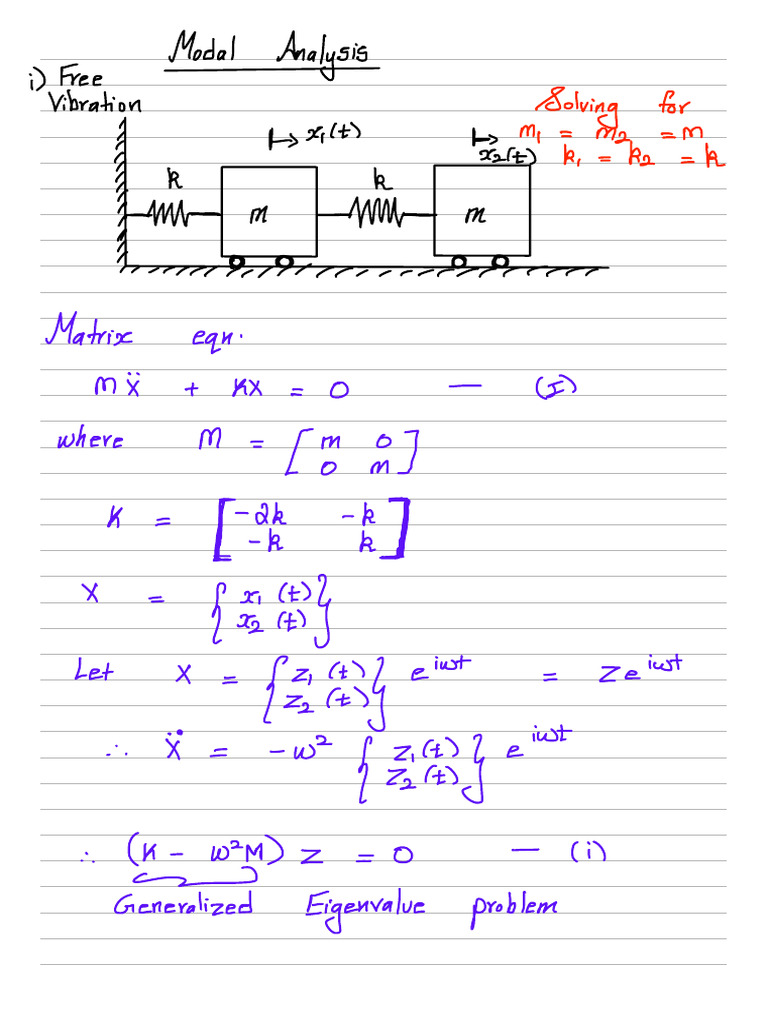 Modal Analysis
i) Free
Vibration
Solving for
m₁ = m₂ = m
k₁ = k₂ = k
x₁(t)
x₂(t)
k
k
m
m
Matrix eqn.
MẌ + KX = 0 — (I)
where M = [ m 0
0 m ]
K = [ -2k -k
-k k ]
X = { x₁ (t)
x₂ (t) }
Let X = { z₁ (t)
z₂ (t) } e^iωt = Ze^iωt
∴ Ẍ = -ω² { z₁(t)
z₂(t) } e^iωt
∴ (K - ω²M) Z = 0 — (i)
Generalized Eigenvalue problem